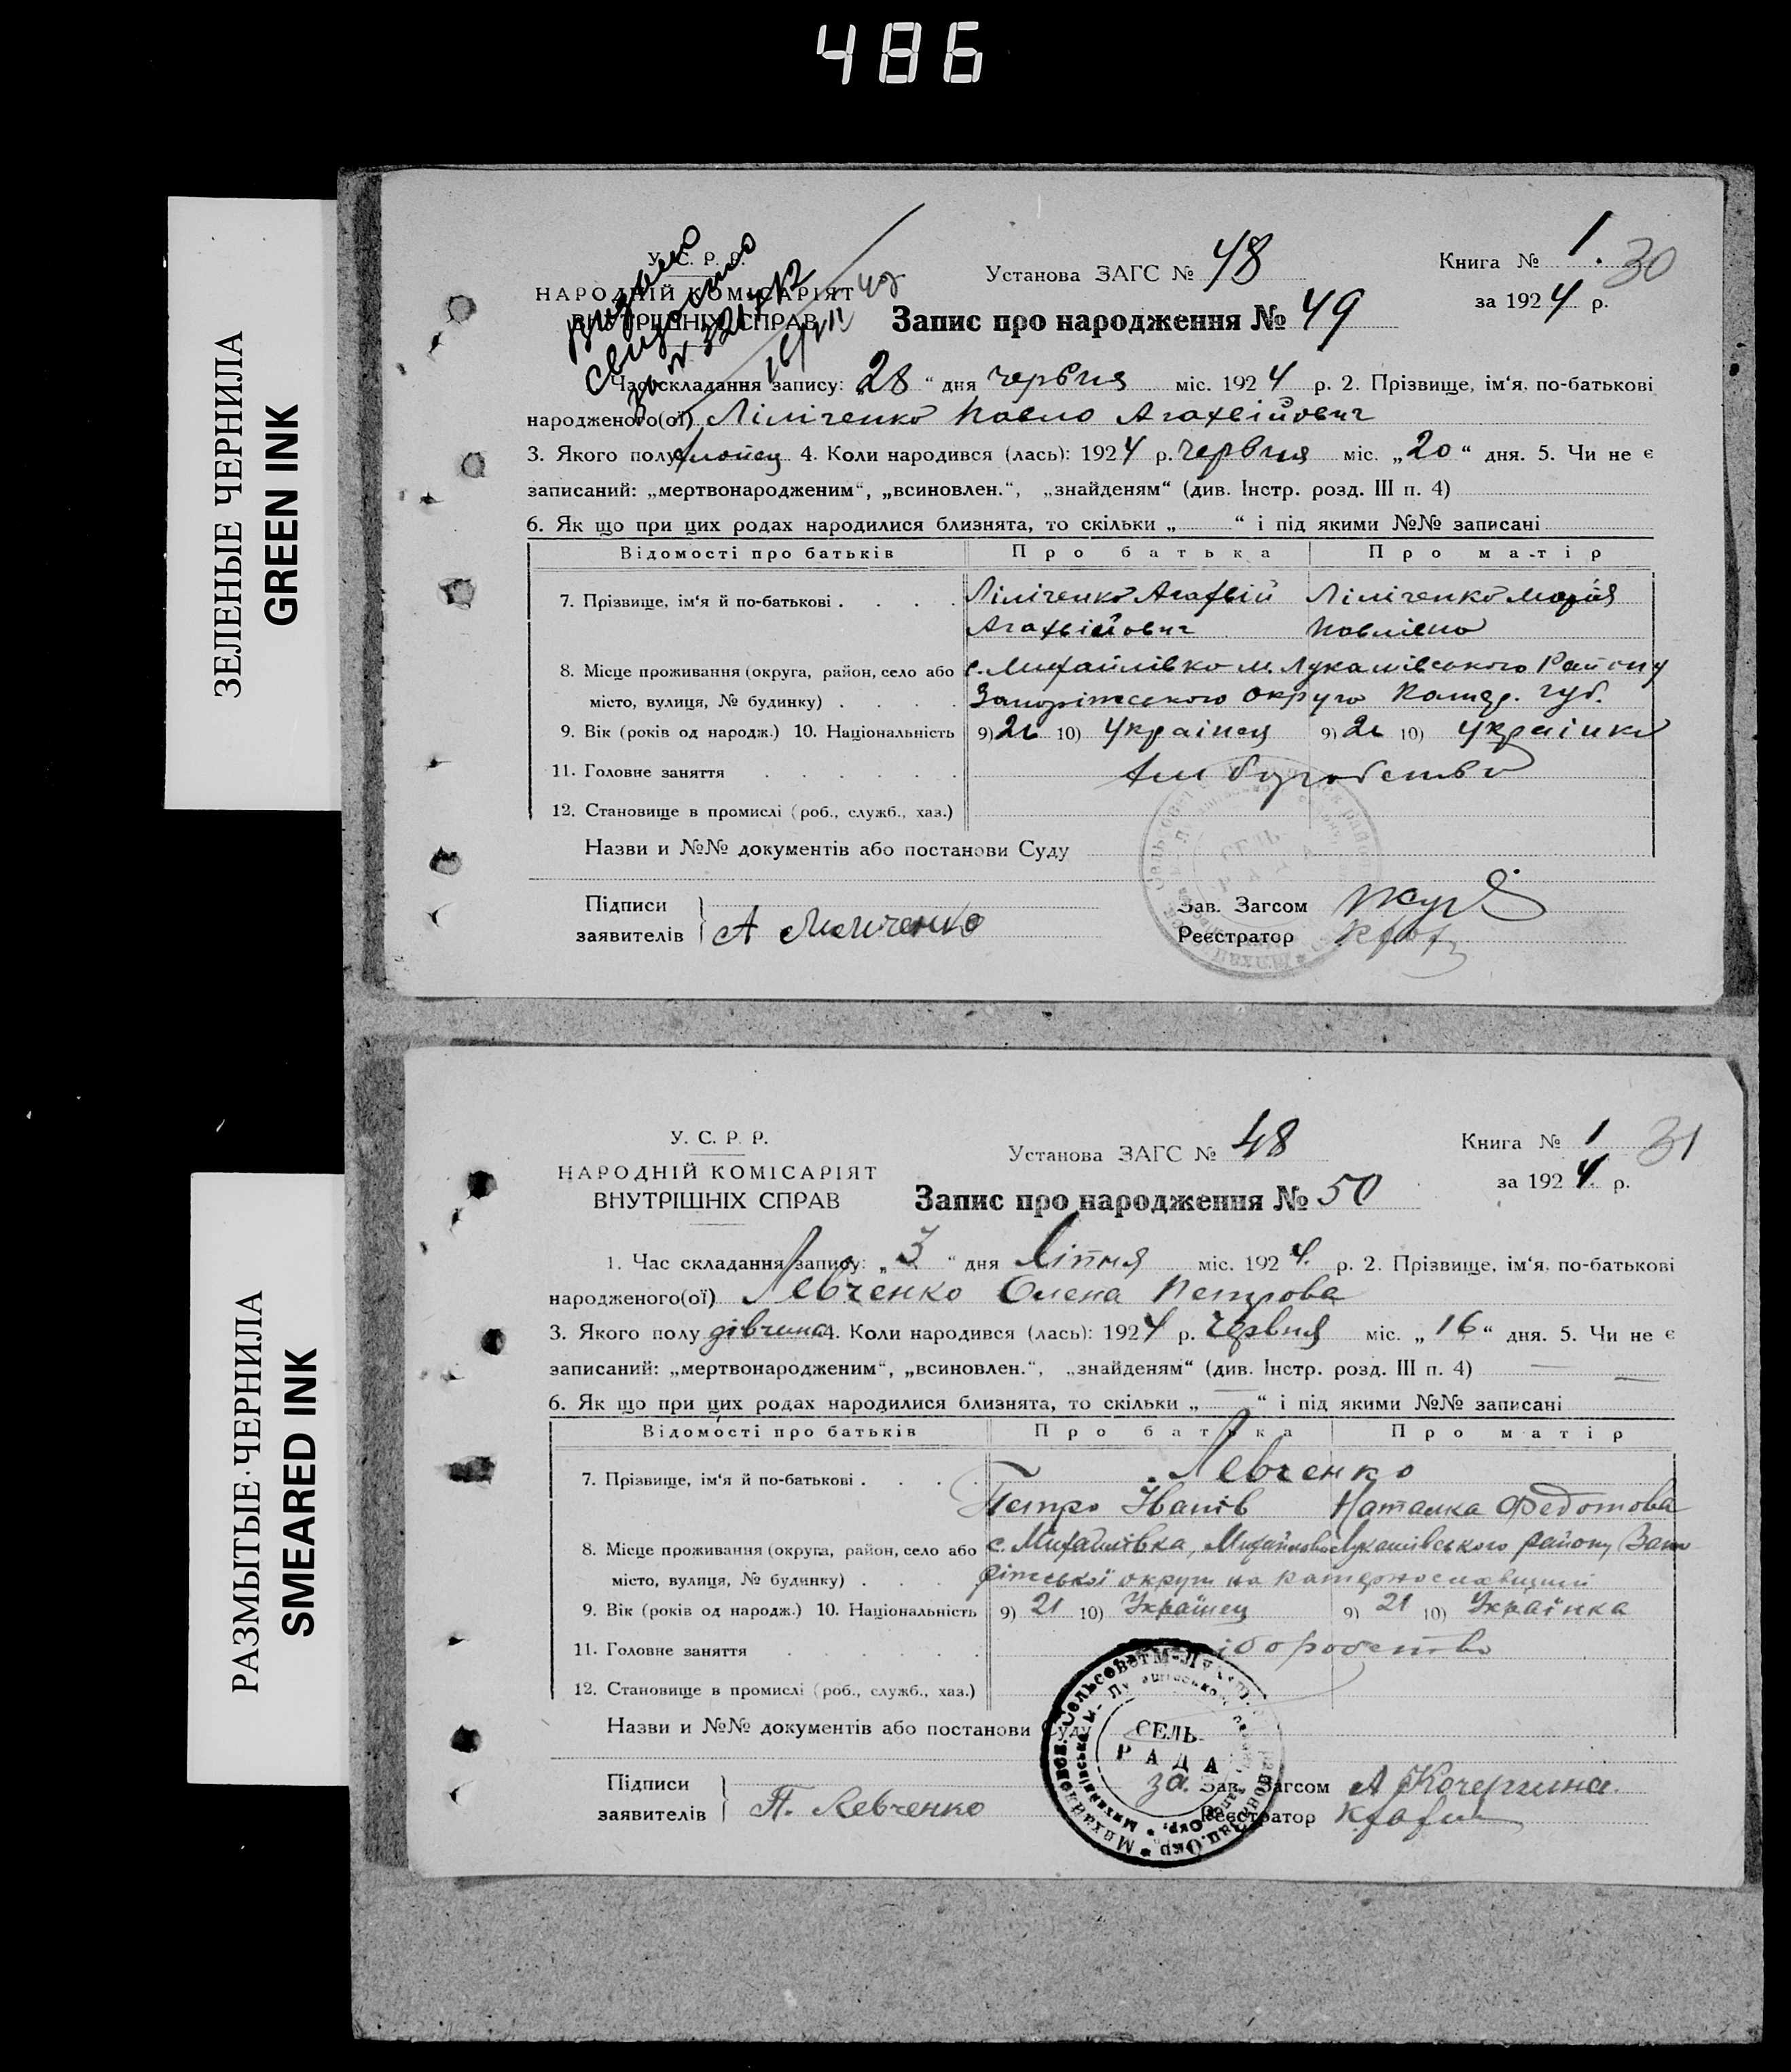 486
ЗЕЛЕНЫЕ ЧЕРНИЛА
GREEN INK
У. С. Р. Р.
НАРОДНІЙ КОМІСАРІЯТ
ВНУТРІШНІХ СПРАВ
Видано
Установа ЗАГС № 48
Книга № 1. 30
за 1924 р.
Запис про народження № 49
Час складання запису: „28“ дня червня міс. 1924 р. 2. Прізвище, ім‘я, по-батькові
народженого(ої) Ліліченко Павло Агахвійович
3. Якого полу хлопец 4. Коли народився (лась): 1924 р. червня міс. „20“ дня. 5. Чи не є
записаний: „мертвонародженим“, „всиновлен.“, „знайденям“ (див. Інстр. розд. III п. 4)
6. Як що при цих родах народилися близнята, то скільки „ “ і під якими №№ записані
Відомості про батьків Про батька Про матір
7. Прізвище, ім‘я й по-батькові . . . . Ліліченко Агафвій Ліліченко Марія
Агахвійович Павлівна
8. Місце проживання (округа, район, село або с. Михайлівко М. Лукашівського Району
місто, вулиця, № будинку) . . . . Запоріжського округо Катер. губ.
9. Вік (років од народж.) 10. Національність 9) 21 10) Українец 9) 21 10) Українка
11. Головне заняття . . . . . .
12. Становище в промислі (роб., служб., хаз.)
СЕЛЬ-
РАДА
Назви и №№ документів або постанови Суду
Підписи
заявителів А Лиличенко
Зав. Загсом
Реєстратор
РАЗМЫТЫЕ ЧЕРНИЛА
SMEARED INK
У. С. Р. Р.
НАРОДНІЙ КОМІСАРІЯТ
ВНУТРІШНІХ СПРАВ
Установа ЗАГС № 48
Книга № 1 31
за 1924. р.
Запис про народження № 50
1. Час складання запису: „3“ дня Літня міс. 1924. р. 2. Прізвище, ім‘я, по-батькові
народженого(ої) Левченко Олена Петрова
3. Якого полу дівчина 4. Коли народився (лась): 1924 р. Червня міс. „16“ дня. 5. Чи не є
записаний: „мертвонародженим“, „всиновлен.“, „знайденям“ (див. Інстр. розд. III п. 4) —
6. Як що при цих родах народилися близнята, то скільки „—“ і під якими №№ записані
Відомості про батьків Про батька Про матір
7. Прізвище, ім‘я й по-батькові . . . . Левченко
Петро Іванів Наталка Федотова
8. Місце проживання (округа, район, село або с. Михайлівка, Михайлово Лукашівського району Запо
місто, вулиця, № будинку) . . . ріжської округи на Катеринославщині
9. Вік (років од народж.) 10. Національність 9) 21 10) Українец 9) 21 10) Українка
11. Головне заняття . . . . . . ліборобство
12. Становище в промислі (роб., служб., хаз.)
СЕЛЬ-
РАДА
Назви и №№ документів або постанови Суду
Підписи
заявителів П. Левченко
за. Зав. Загсом А Кочергина.
Реєстратор